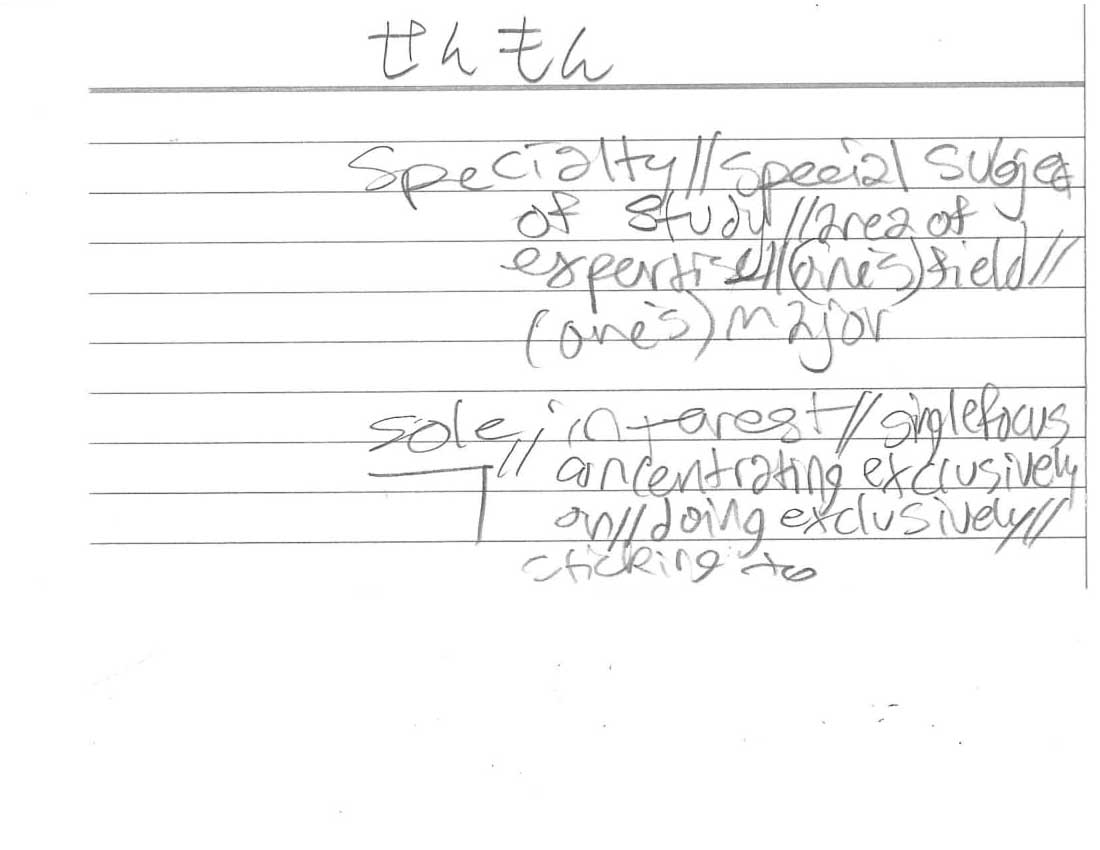 せんもん
Specialty//special subject
of study//area of
expertise//(one's)field//
(one's)major
sole, interest//single focus
// concentrating exclusively
on//doing exclusively//
sticking to